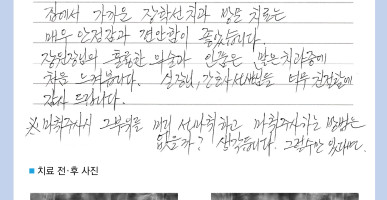 집에서 가까운 장학선치과 방문 치료는
매우 안정감과 편안함이 좋았습니다.
장원장님의 훌륭한 의술과 인품은 많은치과중에
처음 느껴봅니다. 실장님, 간호사선생님들 너무 친절함에
감사 드립니다.
※ 마취주사시 그부위를 미리 선마취하고 마취주사하는 방법은
없을까? 생각듭니다. 그럴수만 있다면.
■ 치료 전·후 사진